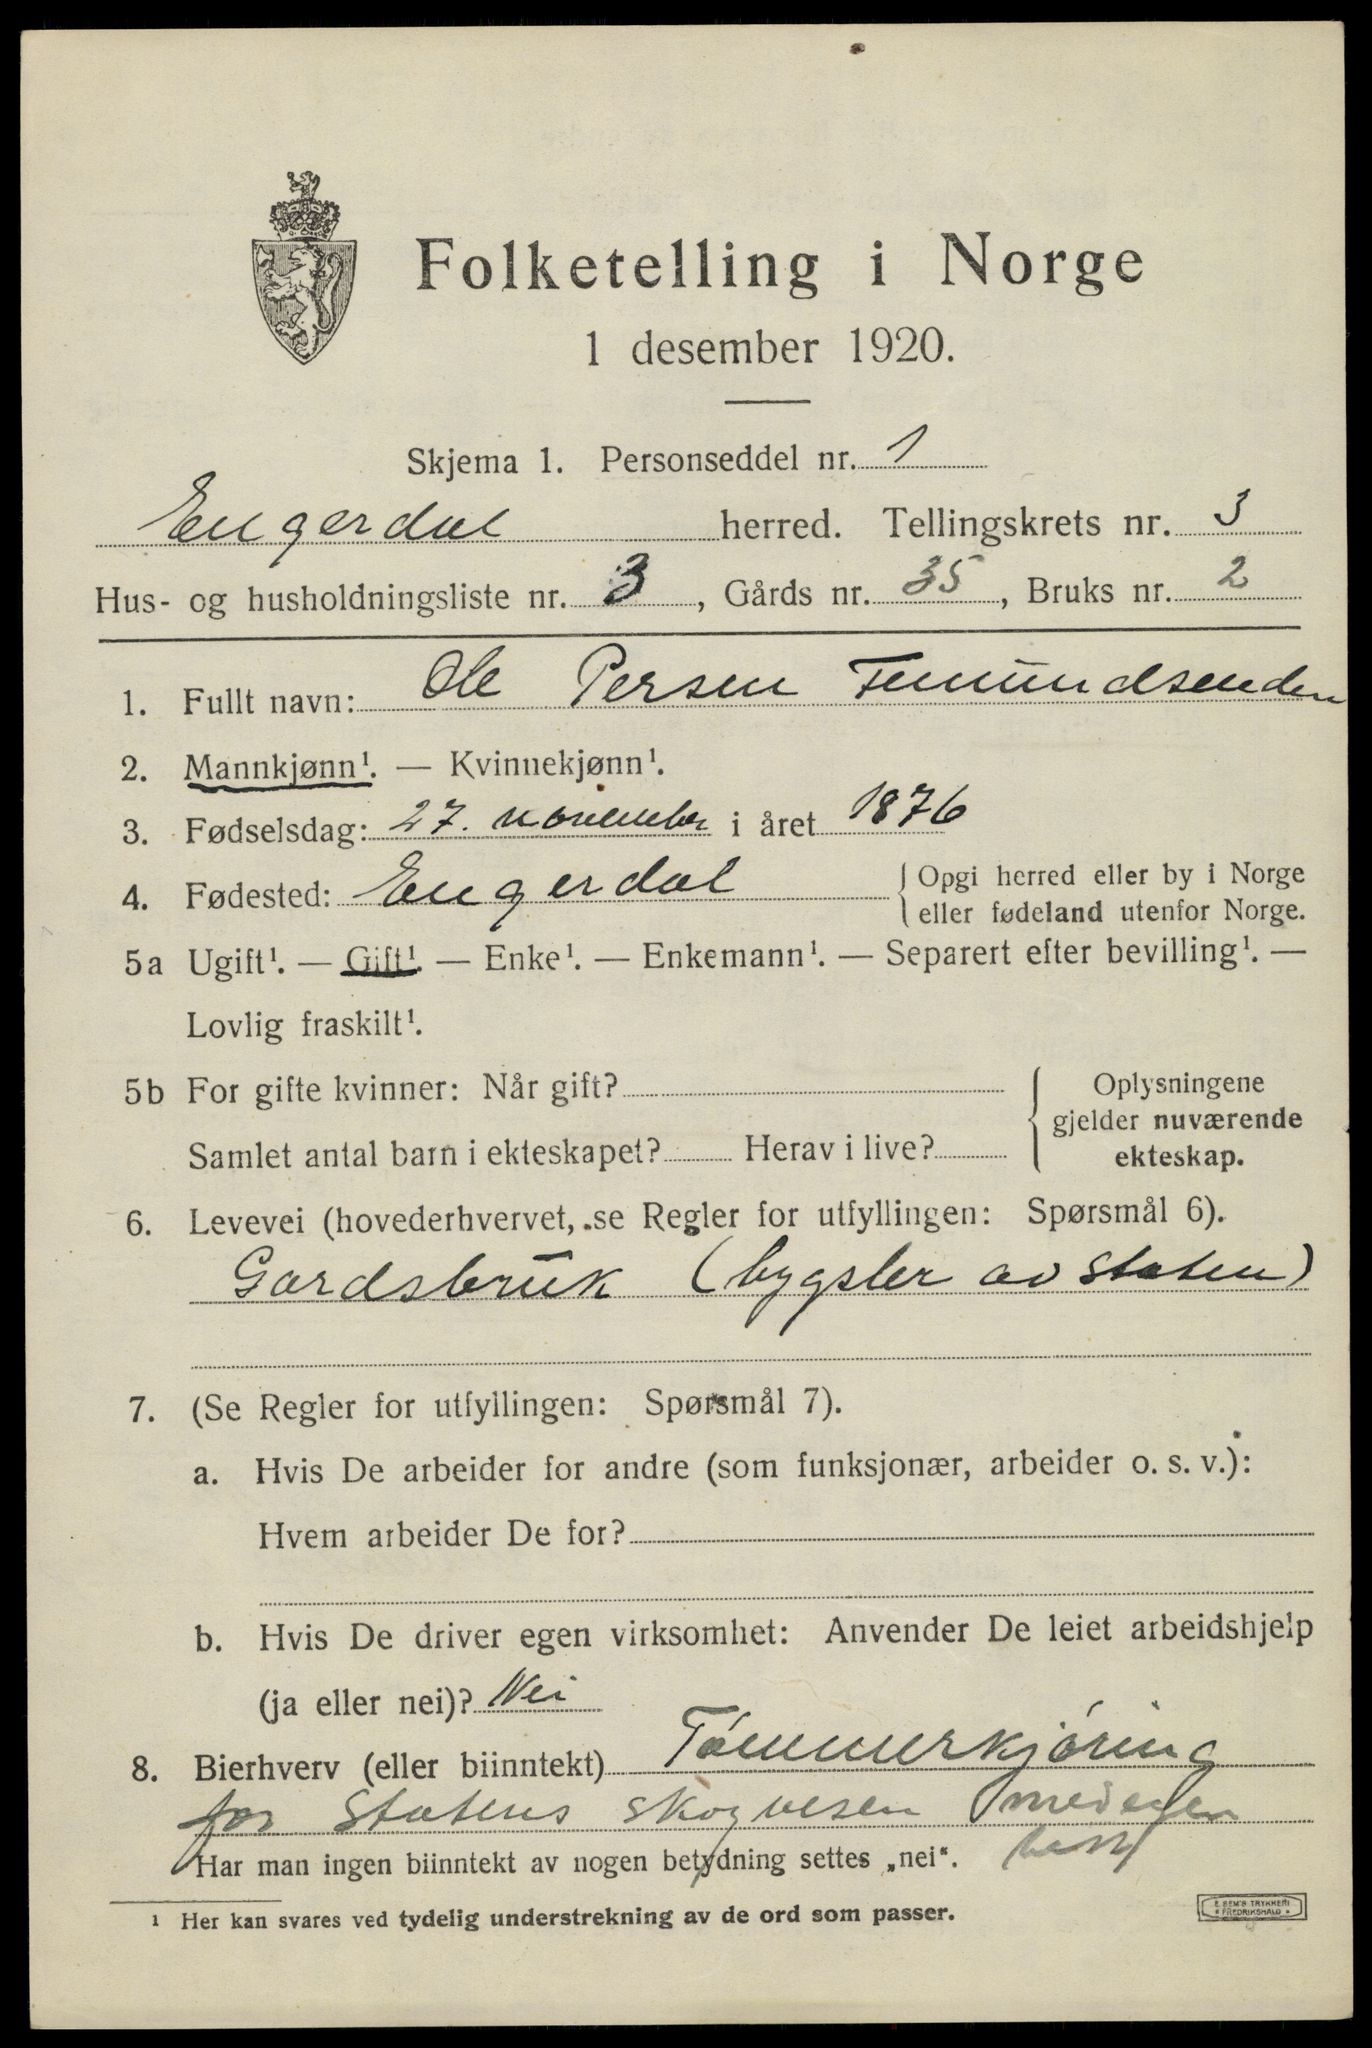 Folketelling i Norge
1 desember 1920.
Skjema 1. Personseddel nr. 1
Engerdal herred. Tellingskrets nr. 3
Hus- og husholdningsliste nr. 3, Gårds nr. 35, Bruks nr. 2
1. Fullt navn: Ole Persen Femundsenden
2. Mannkjønn¹. — Kvinnekjønn¹.
3. Fødselsdag: 27. november i året 1876
4. Fødested: Engerdal { Opgi herred eller by i Norge
eller fødeland utenfor Norge.
5a Ugift¹. — Gift¹. — Enke¹. — Enkemann¹. — Separert efter bevilling¹. —
Lovlig fraskilt¹.
5b For gifte kvinner: Når gift? { Oplysningene
gjelder nuværende
Samlet antal barn i ekteskapet? Herav i live? ekteskap.
6. Levevei (hovederhvervet, se Regler for utfyllingen: Spørsmål 6).
Gardsbruk (bygsler av staten)
7. (Se Regler for utfyllingen: Spørsmål 7).
a. Hvis De arbeider for andre (som funksjonær, arbeider o. s. v.):
Hvem arbeider De for?
b. Hvis De driver egen virksomhet: Anvender De leiet arbeidshjelp
(ja eller nei)? Nei
8. Bierhverv (eller biinntekt) Tómmerkjóring
for Statens skogvesen med egen
hest
Har man ingen biinntekt av nogen betydning settes „nei“.
¹ Her kan svares ved tydelig understrekning av de ord som passer.
E. SEM'S TRYKKERI
FREDRIKSHALD